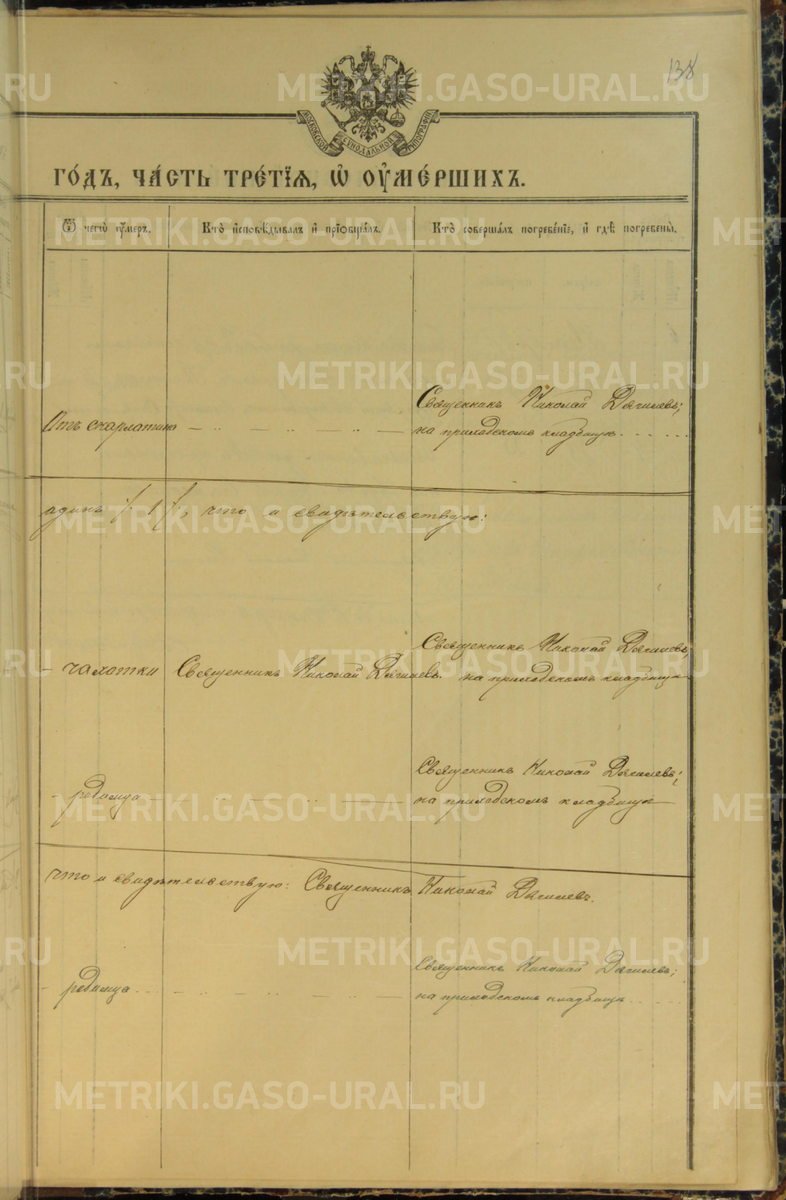 138
МОСКОВСКОЙ СѴНОДАЛЬНОЙ ТИПОГРАФІИ
ГО́ДЪ, ЧА́СТЬ ТРЕ́ТІЯ, Ѡ҆ ОУ҆МЕ́РШИХЪ.
Ѿ чегѡ̀ ᲂу҆́меръ.
Кто̀ и҆сповѣ́дывалъ и҆ прїѡбща́лъ.
Кто̀ соверша́лъ погребе́нїе, и҆ гдѣ̀ погребены̀.
Отъ скарлатины
Священникъ Николай Дягилевъ;
на приходскомъ кладбищѣ
одинъ /. 1 /., что и свидѣтельствую:
- чахотки
Священникъ Николай Дягилевъ.
Священникъ Николай Дягилевъ,
на приходскомъ кладбищѣ
- родимца
Священникъ Николай Дягилевъ;
на приходскомъ кладбищѣ
что и свидѣтельствую: Священникъ Николай Дягилевъ.
- родимца
Священникъ Николай Дягилевъ;
на приходскомъ кладбищѣ
METRIKI.GASO-URAL.RU